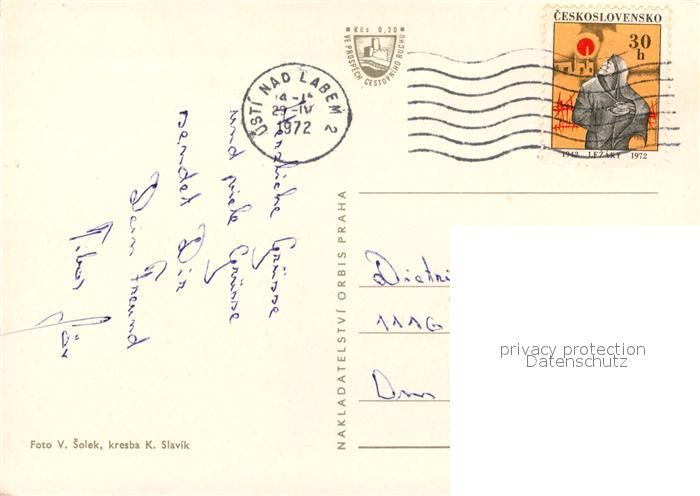 Kčs 0,20
VE PROSPĚCH CESTOVNÍHO RUCHU
ČESKOSLOVENSKO
30 h
1942 LEŽÁKY 1972
ÚSTÍ NAD LABEM 2
1972
Herzliche Grüsse
und viele Grüsse
sendet Dir
Dein Freund
Tibor
NAKLADATELSTVÍ ORBIS PRAHA
Dietri
111G
privacy protection
Datenschutz
Foto V. Šolek, kresba K. Slavík